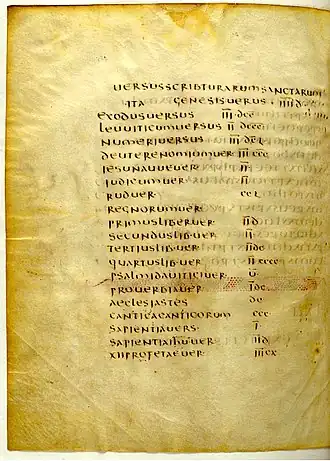 UERSUS SCRIPTURARUM SANCTARUM
ITA GENESIS UERUS IIIID
EXODUS UERSUS III DCC
LEUUITICUM UERSUS II DCCC
NUMERI UERSUS III DCL
DEUTERENOMIUM UER III CCC
IESU NAUE UER II
IUDICUM UER II
RUD UER CCL
REGNORUM UER
PRIMUS LIBER UER IID
SECUNDUS LIB UER II
TERTIUS LIB UER IIDC
QUARTUS LIB UER IICCCC
PSALMI DAUITICI UER U
PROUERBIA UER IDC
AECLESIASTES DC
CANTICA CANTICORUM CCC
SAPIENTIA UERS I
SAPIENTIA IHU UER IID
XII PROFETAE UER IIICX